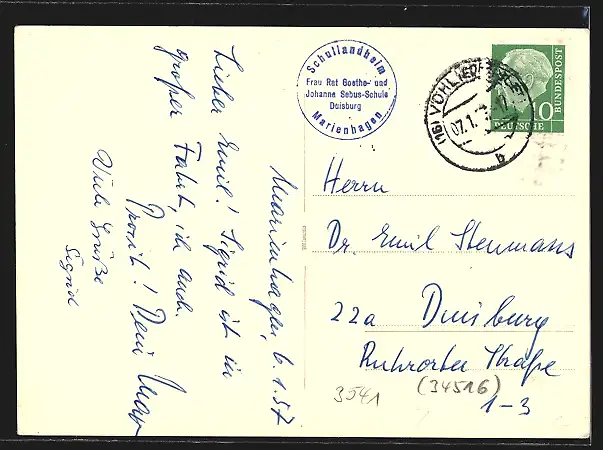 Marienhagen, 6.1.57
Lieber Emil! Sigrid ist in
großer Fahrt, ich auch.
Prosit! Dein
Viele Grüße
Sigrid
Schullandheim
Frau Rat Goethe- und
Johanna Sebus-Schule
Duisburg
Marienhagen
(16) VÖHL
07.1.
b
10
DEUTSCHE
BUNDESPOST
Herrn
Dr. Emil Steumans
22a Duisburg
Ruhrorter Straße
1-3
3541
(34516)